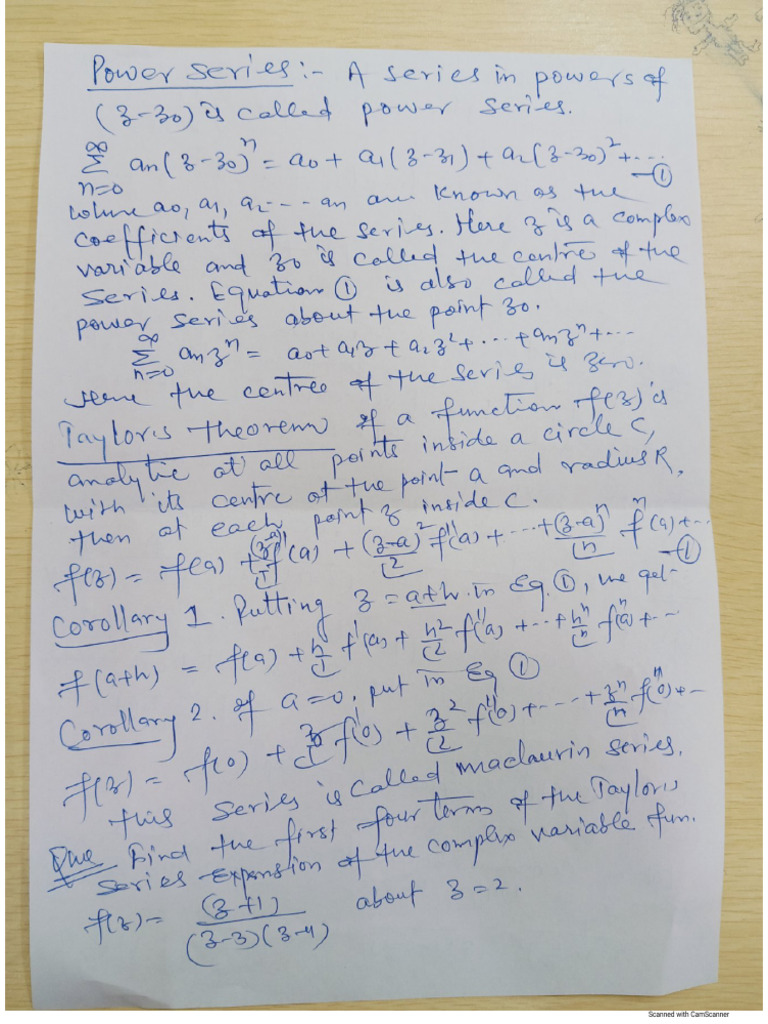 Power series:- A series in powers of
(z-z0) is called power series.
∞
∑ an(z-z0)^n = a0 + a1(z-z1) + a2(z-z0)^2 + ....
n=0 —①
where a0, a1, a2 --- an are known as the
coefficients of the series. Here z is a complex
variable and z0 is called the centre of the
series. Equation ① is also called the
power series about the point z0.
∞
∑ an z^n = a0 + a1z + a2z^2 + ... + an z^n + ...
n=0
Here the centree of the series is zero.
Taylor's theorem If a function f(z) is
analytic at all points inside a circle C,
with its centre at the point a and radius R,
then at each point z inside C.
f(z) = f(a) + (z-a)/|1 f'(a) + (z-a)^2/|2 f''(a) + ... + (z-a)^n/|n f^n(a) + ...
—①
Corollary 1. Putting z = a+h in Eq. ①, we get
f(a+h) = f(a) + h/|1 f'(a) + h^2/|2 f''(a) + ... + h^n/|n f^n(a) + ...
Corollary 2. If a = 0, put in Eq ①
f(z) = f(0) + z/|1 f'(0) + z^2/|2 f''(0) + .... + z^n/|n f^n(0) + ...
this series is called maclaurin series.
Que Find the first four terms of the Taylor's
series expansion of the complex variable fun.
f(z) = (z+1)/(z-3)(z-4) about z = 2.
Scanned with CamScanner